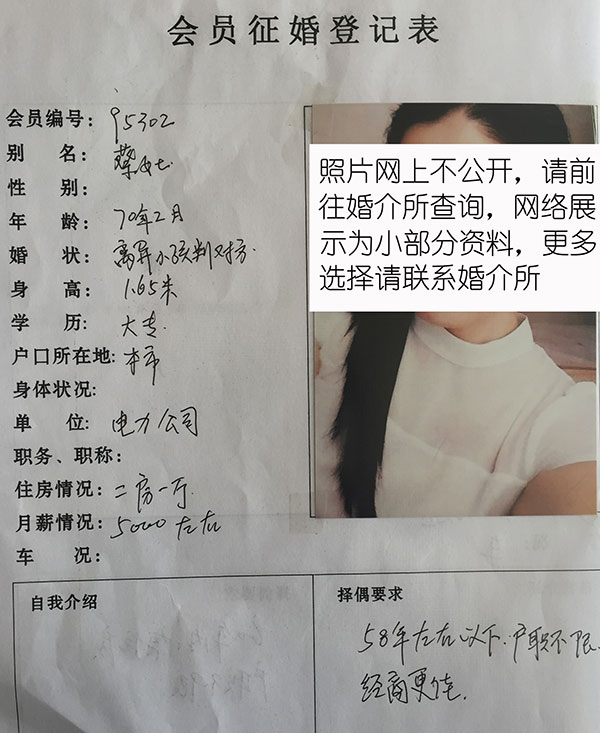 会员征婚登记表
会员编号：95302
别　名：蔡女士
性　别：
年　龄：70年2月
婚　状：离异小孩判对方
身　高：1.65米
学　历：大专
户口所在地：本市
身体状况：
单　位：电力公司
职务、职称：
住房情况：二房一厅
月薪情况：5000左右
车　况：
照片网上不公开，请前
往婚介所查询，网络展
示为小部分资料，更多
选择请联系婚介所
自我介绍
择偶要求
58年左右以下.户职不限.
经商更佳.